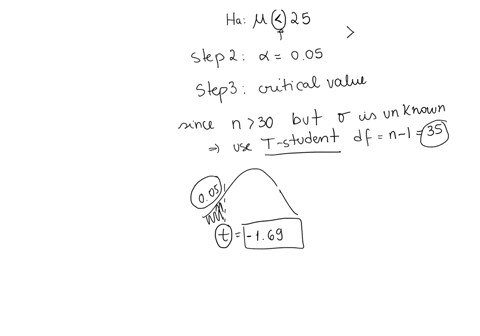 Ha: μ < 25 >
Step 2: α = 0.05
Step 3: critical value
since n > 30 but σ is unknown
⇒ use T-student df = n-1 = 35
0.05
t = -1.69